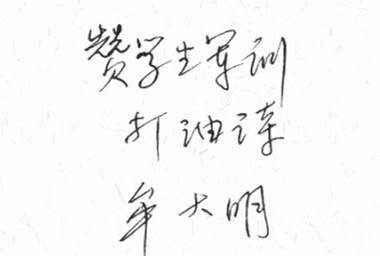 赞学生军训
打油诗
牟大明